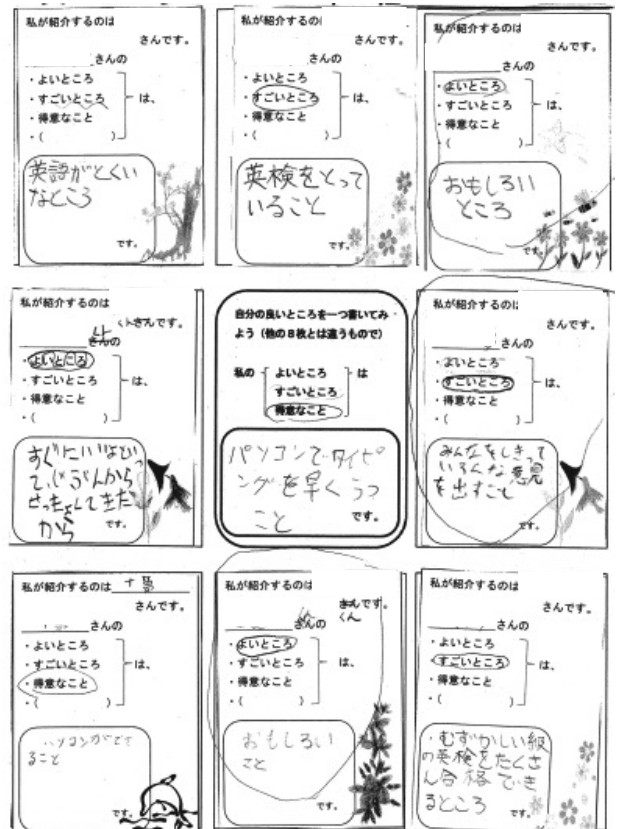 私が紹介するのは
さんです。
さんの
・よいところ
・すごいところ
・得意なこと
・(　　　)
は、
英語がとくい
なところ
です。
私が紹介するのは
さんです。
さんの
・よいところ
・すごいところ
・得意なこと
・(　　　)
は、
英検をとって
いること
です。
私が紹介するのは
さんです。
さんの
・よいところ
・すごいところ
・得意なこと
・(　　　)
は、
おもしろい
ところ
です。
私が紹介するのは
くんさんです。
さんの
・よいところ
・すごいところ
・得意なこと
・(　　　)
は、
から
です。
自分の良いところを一つ書いてみ
よう（他の８枚とは違うもので）
私の
よいところ
すごいところ
得意なこと
は
パソコンでタイピ
ングを早くうつ
こと
です。
私が紹介するのは
さんです。
さんの
・よいところ
・すごいところ
・得意なこと
・(　　　)
は、
みんなをしきって
いろんな意見
を出すこと
です。
私が紹介するのは
さんです。
さんの
・よいところ
・すごいところ
・得意なこと
・(　　　)
は、
パソコンができ
ること
です。
私が紹介するのは
さんです。
くん
さんの
・よいところ
・すごいところ
・得意なこと
・(　　　)
は、
おもしろい
こと
です。
私が紹介するのは
さんです。
さんの
・よいところ
・すごいところ
・得意なこと
・(　　　)
は、
・むずかしい級
の英検をたくさ
ん合格でき
るところ
です。